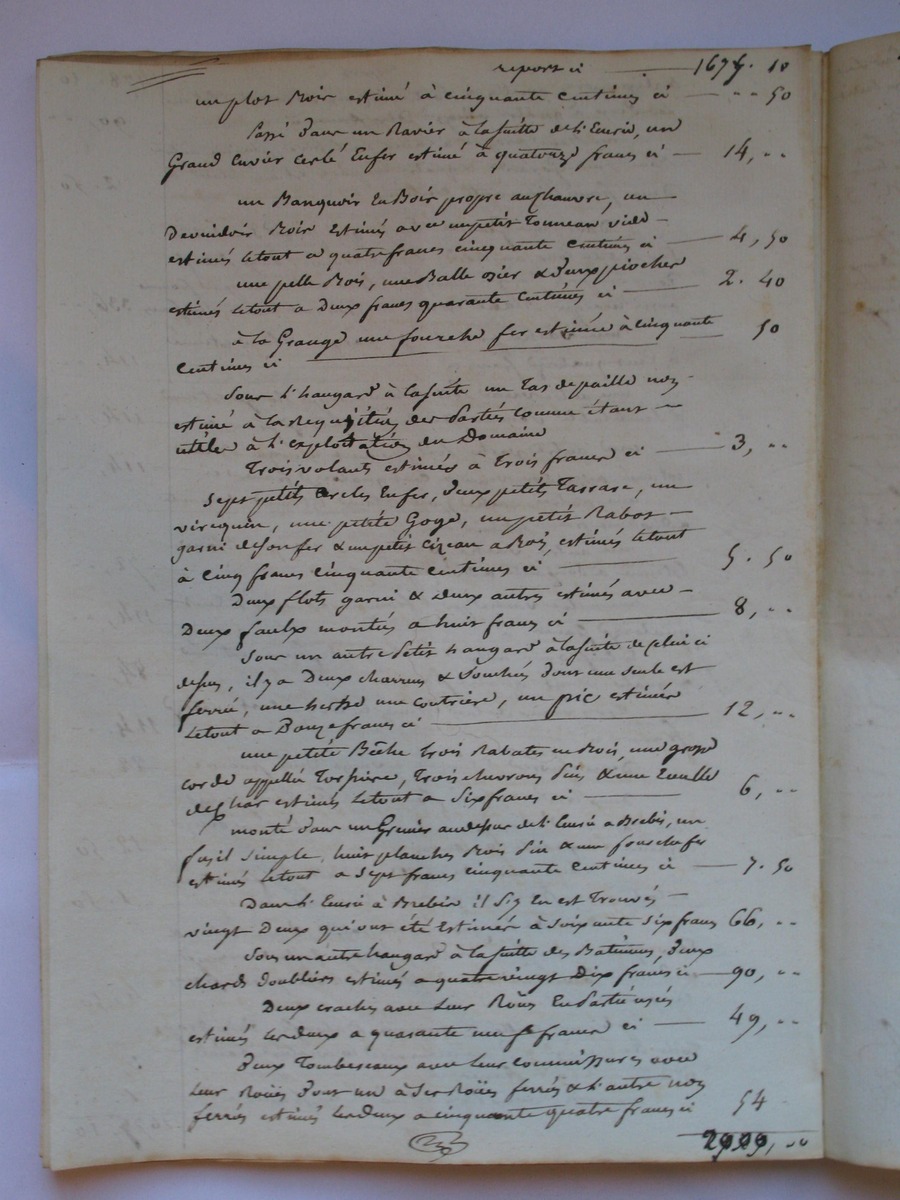 report ci 1677. 10
un plot Bois estimé à cinquante centimes ci " " 50
Passé dans un Ravier à la suitte de l'Eurie, un
Grand Cuvier Cerclé Enfer estimé à quatorze francs ci 14, "
un Banquoir En Bois propre au chanvre, un
Devuidoir Bois Estimés avec un petit Tonneau vide
estimés le tout a quatre francs cinquante centimes ci 4, 50
une pelle Bois, une Balle osier & Deux pioches
estimés le tout a Deux francs quarante centimes ci 2. 40
à la Grange une fourche fer estimée à cinquante 50
centimes ci
Sous l'hangard à la suite un Tas de paille non
estimé à la Requisition des Parties comme étant
utile à l'exploitation du Domaine
Trois volants estimés à Trois francs ci 3, "
Sept petits Cercles Enfer, Deux petits Tarrare, un
virequin, une petite Goye, un petit Rabot
garni de son fer & un petit Cizeau a Bois, estimés le tout
à cinq francs cinquante centimes ci 5. 50
Deux flots garni & deux autres estimés avec
Deux faulx montés a huit francs ci 8, "
Sous un autre Petit hangard à la suite de celui ci
dessus, il y a Deux charrues & Souchés dont une seule est
ferrée, une herse une coutriere, un pic estimés
Le tout a Douze francs ci 12, "
une petite Bêche trois Rabates en Bois, une grosse
corde appellée Torpiere, Trois chevrons Pin & une Eculle
de char estimés le tout a Six francs ci 6, "
monté dans un Grenier au dessus de l'Eurie a Brebis, un
fusil simple, huit planches Bois Pin & une fourche fer
estimés le tout a sept francs cinquante centimes ci 7. 50
Dans l'Eurie à Brebis il s'y En est Trouvés
vingt Deux qui ont été Estimées à soixante six francs 66, "
Sous un autre hangard à la suitte des Batimens, Deux
chards doubliers estimés a quatre vingt Dix francs ci 90, "
Deux craches avec leur Roües En Partie usés
estimés les deux a quarante neuf francs ci 49, "
Deux Tombereaux avec leur commissures avec
leur Roües Dont un à ses Roües ferrés & l'autre non
ferrés estimés les deux a cinquante quatre francs ci 54
2000, 50